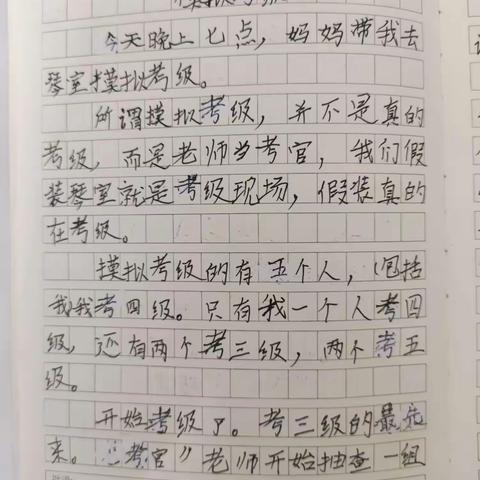 模拟考级
今天晚上七点，妈妈带我去
琴室摸拟考级。
所谓摸拟考级，并不是真的
考级，而是老师当考官，我们假
装琴室就是考级现场，假装真的
在考级。
摸拟考级的有五个人，（包括
我我考四级。只有我一个人考四
级，还有两个考三级，两个考五
级。
开始考级了。考三级的最先
来。“考官”老师开始抽查一组